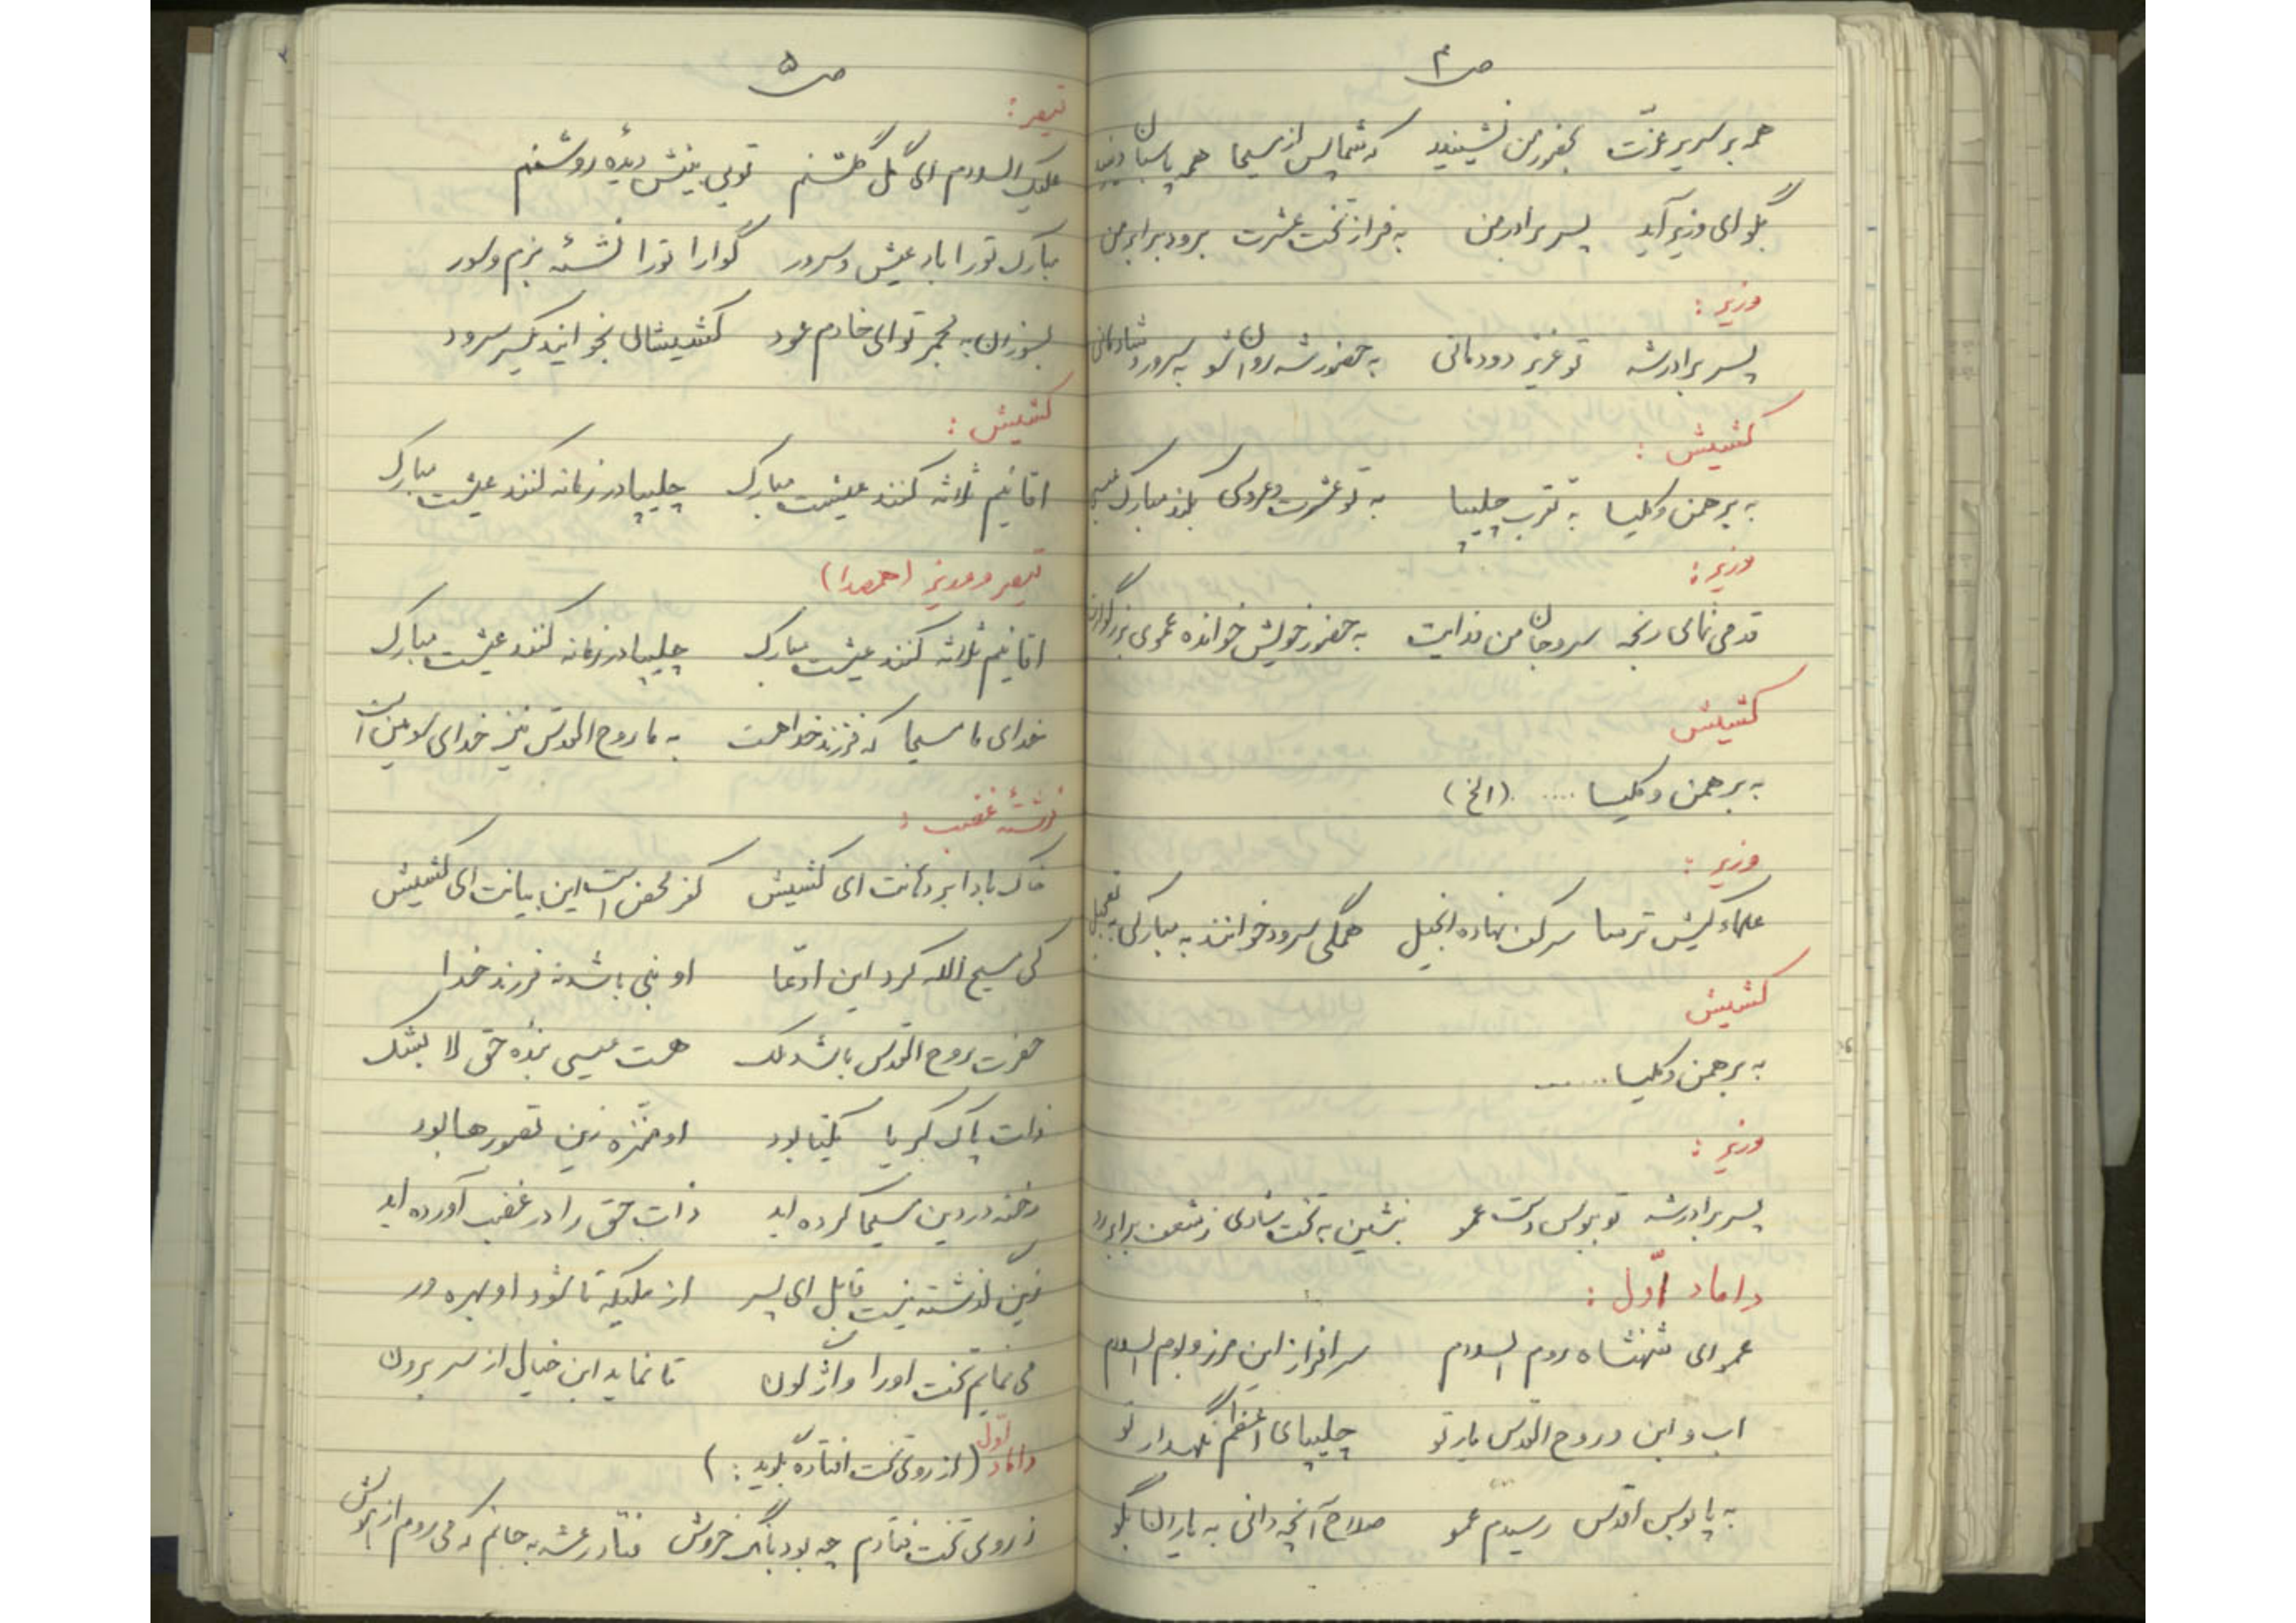 ص ۴
همه بر سریر عزّت بحضور من نشینید که شما پس از مسیحا همه پاسبان دینید
بگو ای وزیر آید پسر برادر من به فراز تخت عشرت برود برابر من
وزیر :
پسر برادر شه تو عزیز دودمانی به حضور شه روان شو به سرور و شادمانی
کشیش :
به برهمن و کلیسا به تقرب چلیپا به تو عشرت و عروسی بکند مبارک عیسی
وزیر :
قدمی نمای رنجه سر و جان من فدایت به حضور خویش خوانده عموی بزرگوارت
کشیش
به برهمن و کلیسا ..... (الخ)
وزیر :
علماء کیش ترسا سر کف نهاده انجیل همگی سرود خوانند به مبارکی به تعجیل
کشیش
به برهمن و کلیسا ......
وزیر :
پسر برادر شه تو ببوس دست عمو بنشین به تخت شادی ز شعف برابر او
داماد اوّل :
عمو ای شهنشاه روم السلام سرافراز این مرز و بوم السلام
اب و ابن و روح القدس یار تو چلیپای اعظم نگهدار تو
به پابوس اقدس رسیدم عمو صلاح آنچه دانی به یاران بگو
ص ۵
قیصر :
علیک السلام ای گل گلشنم تویی بینش دیدهٔ روشنم
مبارک تو را باد عیش و سرور گوارا تو را نشئهٔ بزم و سور
بسوزان به مجمر تو ای خادم عود کشیشان بخوانید یکسر سرود
کشیش :
اقانیم ثلاثه کنند عیشت مبارک چلیپا در زمانه کنند عیشت مبارک
قیصر و وزیر (همصدا)
اقانیم ثلاثه کنند عیشت مبارک چلیپا در زمانه کنند عیشت مبارک
خدای ما مسیحا که فرزند خدا هست به ما روح القدس نیز خدای لامین است
فرشتهٔ غضب :
خاک بادا بر دهانت ای کشیش کفر محض است این بیانت ای کشیش
کی مسیح الله کرد این ادّعا او نبی باشد نه فرزند خدا
حضرت روح القدس باشد ملک هست عیسی بندهٔ حق لا بشک
ذات پاک کبریا یکتا بود او منزّه زین تصورها بود
رخنه در دین مسیحا کرده اید ذات حق را در غضب آورده اید
زین گذشته نیست قابل ای پسر از ملیکه تا شود او بهره ور
می نمایم تخت او را واژگون تا نماید این خیال از سر برون
داماد اوّل (از روی تخت افتاده بگوید : )
ز روی تخت فتادم چه بود بانگ خروش فتاد رعشه به جانم که می روم از هوش